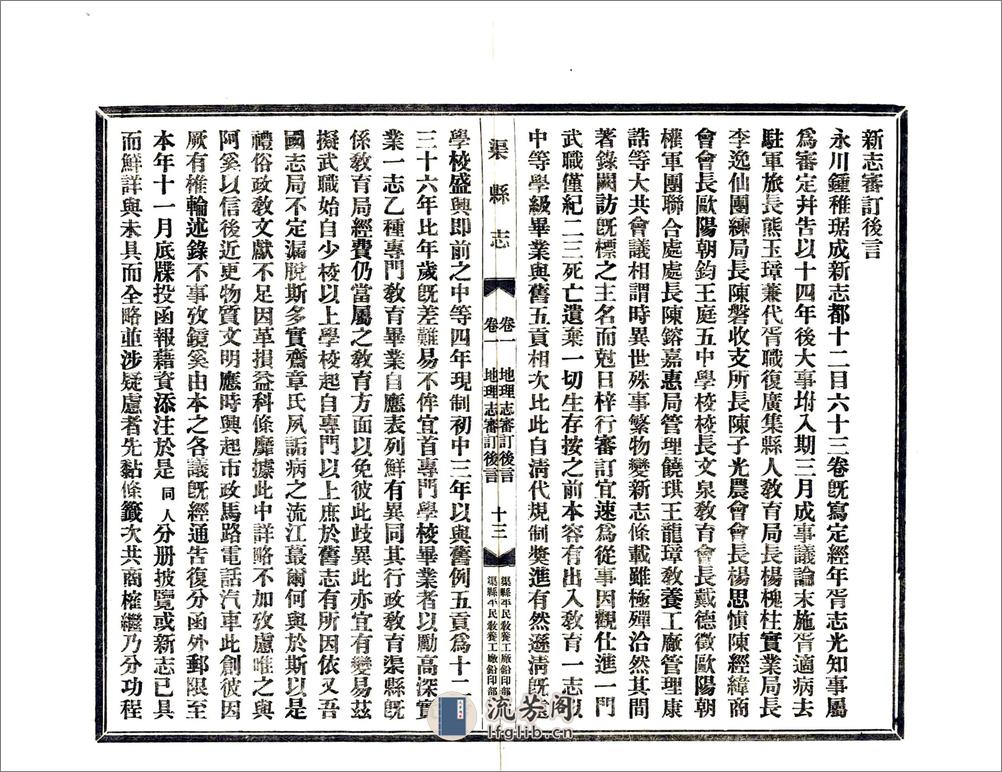 新志審訂後言
永川鍾稚琚成新志都十二目六十三卷旣寫定經年胥志光知事屬
爲審定幷告以十四年後大事坿入期三月成事議論末施胥適病去
駐軍旅長熊玉璋兼代胥職復廣集縣人敎育局長楊槐柱實業局長
李逸仙團練局長陳磐收支所長陳子光農會會長楊思愼陳經緯商
會會長歐陽朝鈞王庭五中學校校長文泉敎育會長戴德徵歐陽朝
權軍團聯合處處長陳鎔嘉惠局管理饒琪王龍璋敎養工廠管理康
誥等大共會議相謂時異世殊事繁物變新志條載雖極殫洽然其間
著錄闕訪旣標之主名而尅日梓行審訂宜速爲從事因觀仕進一門
武職僅紀二三死亡遺棄一切生存按之前本容有出入敎育一志似
中等學級畢業與舊五貢相次比此自淸代規制獎進有然遜淸旣
渠縣志
卷一
地理志審訂後言
十三
渠縣平民敎養工廠鉛印部
學校盛興即前之中等四年現制初中三年以與舊例五貢爲十二
三十六年比年歲旣差難易不侔宜首專門學校畢業者以勵高深實
業一志乙種專門敎育畢業自應表列鮮有異同其行政敎育渠縣旣
係敎育局經費仍當屬之敎育方面以免彼此歧異此亦宜有變易茲
擬武職始自少校以上學校起自專門以上庶於舊志有所因依又吾
國志局不定漏脫斯多實齋章氏夙詬病之流江蕞爾何與於斯以是
禮俗政敎文獻不足因革損益科條靡據此中詳略不加攷慮唯之與
阿奚以信後近更物質文明應時興起市政馬路電話汽車此創彼因
厥有椎輪述錄不事攷鏡奚由本之各議旣經通告復分函外郵限至
本年十一月底牒投函報藉資添注於是同人分册披覽或新志已具
而鮮詳與未具而全略並涉疑慮者先黏條籤次共商榷繼乃分功程
流芳閣
lfglib.cn